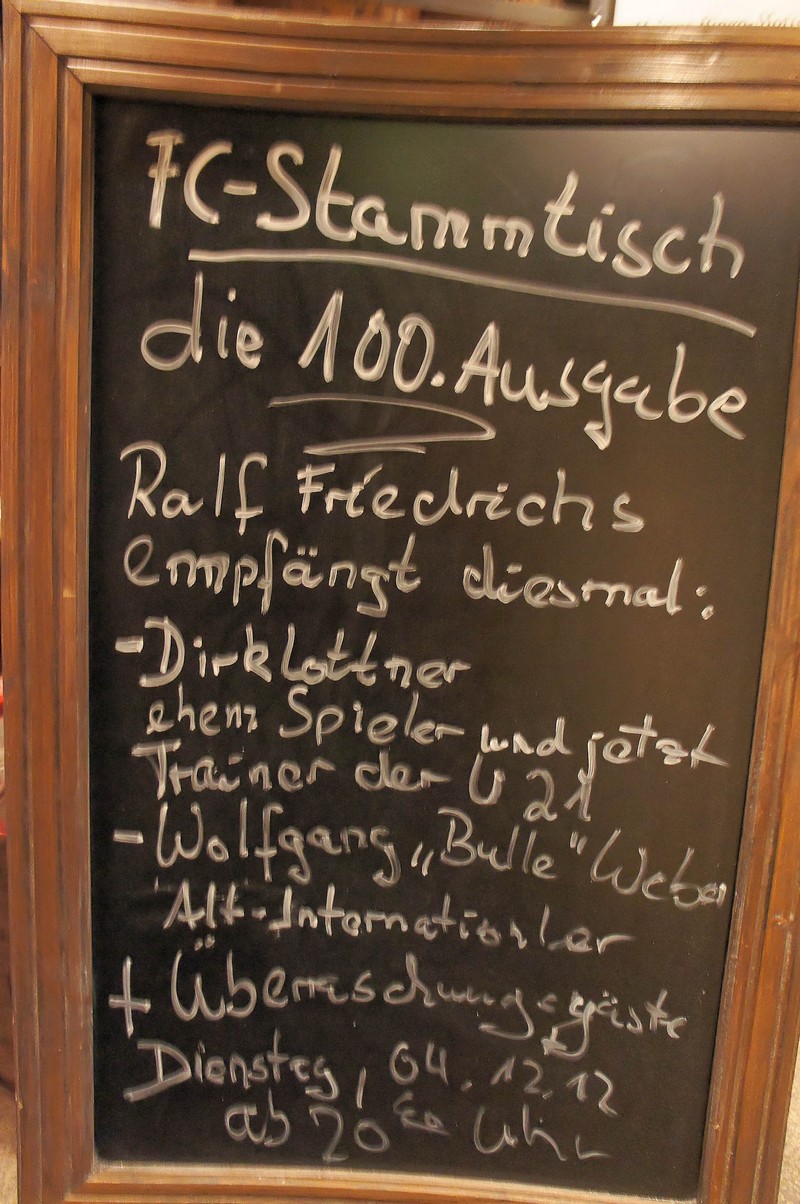 FC-Stammtisch
die 100. Ausgabe
Ralf Friedrichs
empfängt diesmal:
- Dirk Lottner
ehem Spieler und jetzt
Trainer der U 21
- Wolfgang „Bulle" Weber
Alt-Internationler
+ Überraschungsgäste
Dienstag, 04.12.12
ab 20 00 Uhr